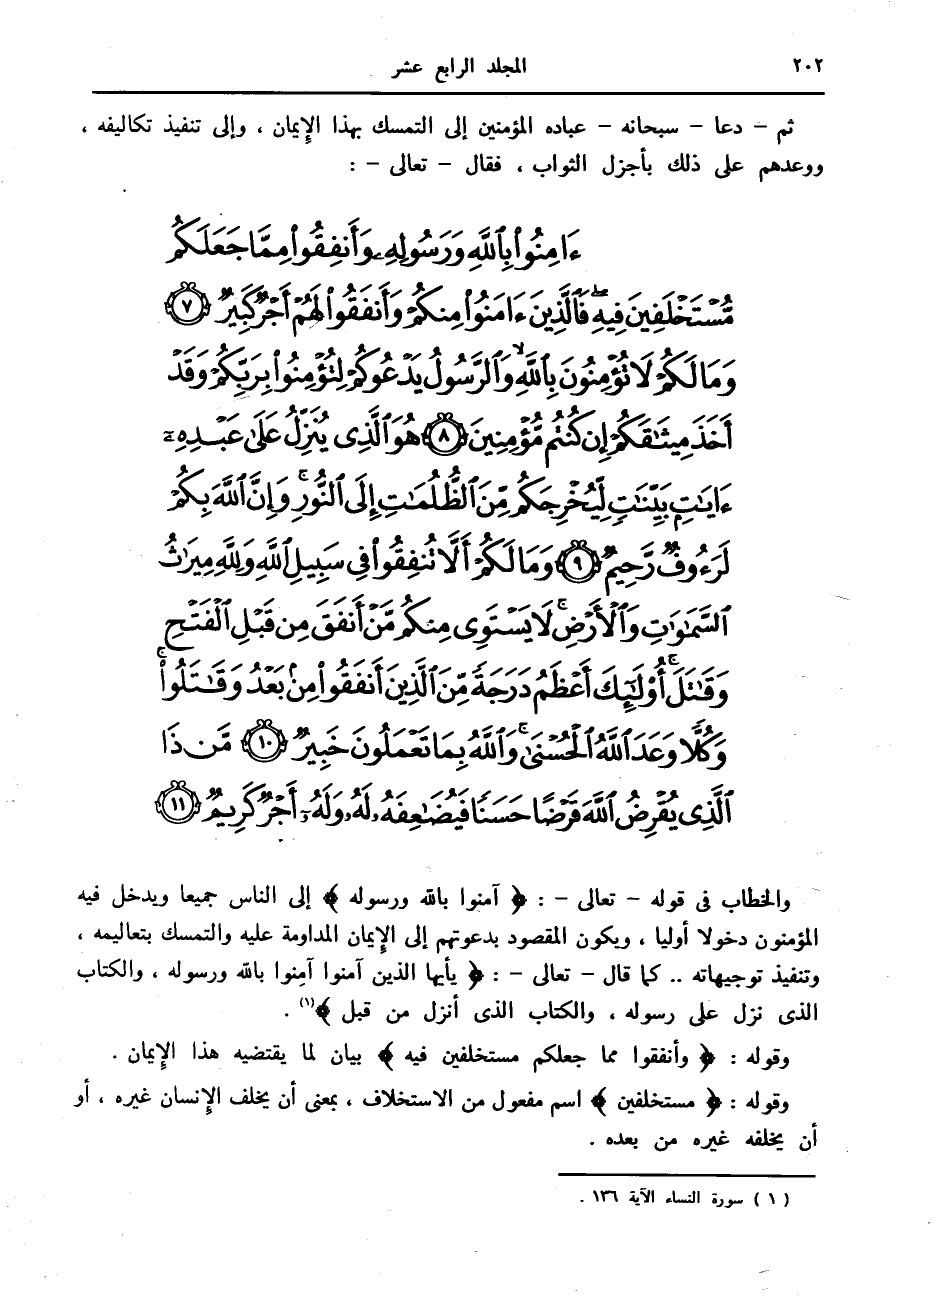 ٢٠٢
المجلد الرابع عشر
ثم - دعا - سبحانه - عباده المؤمنين إلى التمسك بهذا الإيمان ، وإلى تنفيذ تكاليفه ،
ووعدهم على ذلك بأجزل الثواب ، فقال - تعالى - :
ءَامِنُوا۟ بِٱللَّهِ وَرَسُولِهِۦ وَأَنفِقُوا۟ مِمَّا جَعَلَكُم
مُّسْتَخْلَفِينَ فِيهِ ۖ فَٱلَّذِينَ ءَامَنُوا۟ مِنكُمْ وَأَنفَقُوا۟ لَهُمْ أَجْرٌ كَبِيرٌ ٧
وَمَا لَكُمْ لَا تُؤْمِنُونَ بِٱللَّهِ ۙ وَٱلرَّسُولُ يَدْعُوكُمْ لِتُؤْمِنُوا۟ بِرَبِّكُمْ وَقَدْ
أَخَذَ مِيثَٰقَكُمْ إِن كُنتُم مُّؤْمِنِينَ ٨ هُوَ ٱلَّذِى يُنَزِّلُ عَلَىٰ عَبْدِهِۦٓ
ءَايَٰتٍۭ بَيِّنَٰتٍ لِّيُخْرِجَكُم مِّنَ ٱلظُّلُمَٰتِ إِلَى ٱلنُّورِ ۚ وَإِنَّ ٱللَّهَ بِكُمْ
لَرَءُوفٌ رَّحِيمٌ ٩ وَمَا لَكُمْ أَلَّا تُنفِقُوا۟ فِى سَبِيلِ ٱللَّهِ وَلِلَّهِ مِيرَٰثُ
ٱلسَّمَٰوَٰتِ وَٱلْأَرْضِ ۚ لَا يَسْتَوِى مِنكُم مَّنْ أَنفَقَ مِن قَبْلِ ٱلْفَتْحِ
وَقَٰتَلَ ۚ أُو۟لَٰٓئِكَ أَعْظَمُ دَرَجَةً مِّنَ ٱلَّذِينَ أَنفَقُوا۟ مِنۢ بَعْدُ وَقَٰتَلُوا۟ ۚ
وَكُلًّا وَعَدَ ٱللَّهُ ٱلْحُسْنَىٰ ۚ وَٱللَّهُ بِمَا تَعْمَلُونَ خَبِيرٌ ١٠ مَّن ذَا
ٱلَّذِى يُقْرِضُ ٱللَّهَ قَرْضًا حَسَنًا فَيُضَٰعِفَهُۥ لَهُۥ وَلَهُۥٓ أَجْرٌ كَرِيمٌ ١١
والخطاب فى قوله - تعالى - : ﴿ آمنوا بالله ورسوله ﴾ إلى الناس جميعا ويدخل فيه
المؤمنون دخولا أوليا ، ويكون المقصود بدعوتهم إلى الإيمان المداومة عليه والتمسك بتعاليمه ،
وتنفيذ توجيهاته .. كما قال - تعالى - : ﴿ يأيها الذين آمنوا آمِنوا بالله ورسوله ، والكتاب
الذى نزل على رسوله ، والكتاب الذى أنزل من قبل ﴾(١) .
وقوله : ﴿ وأنفقوا مما جعلكم مستخلفين فيه ﴾ بيان لما يقتضيه هذا الإيمان .
وقوله : ﴿ مستخلفين ﴾ اسم مفعول من الاستخلاف ، بمعنى أن يخلف الإنسان غيره ، أو
أن يخلفه غيره من بعده .
( ١ ) سورة النساء الآية ١٣٦ .